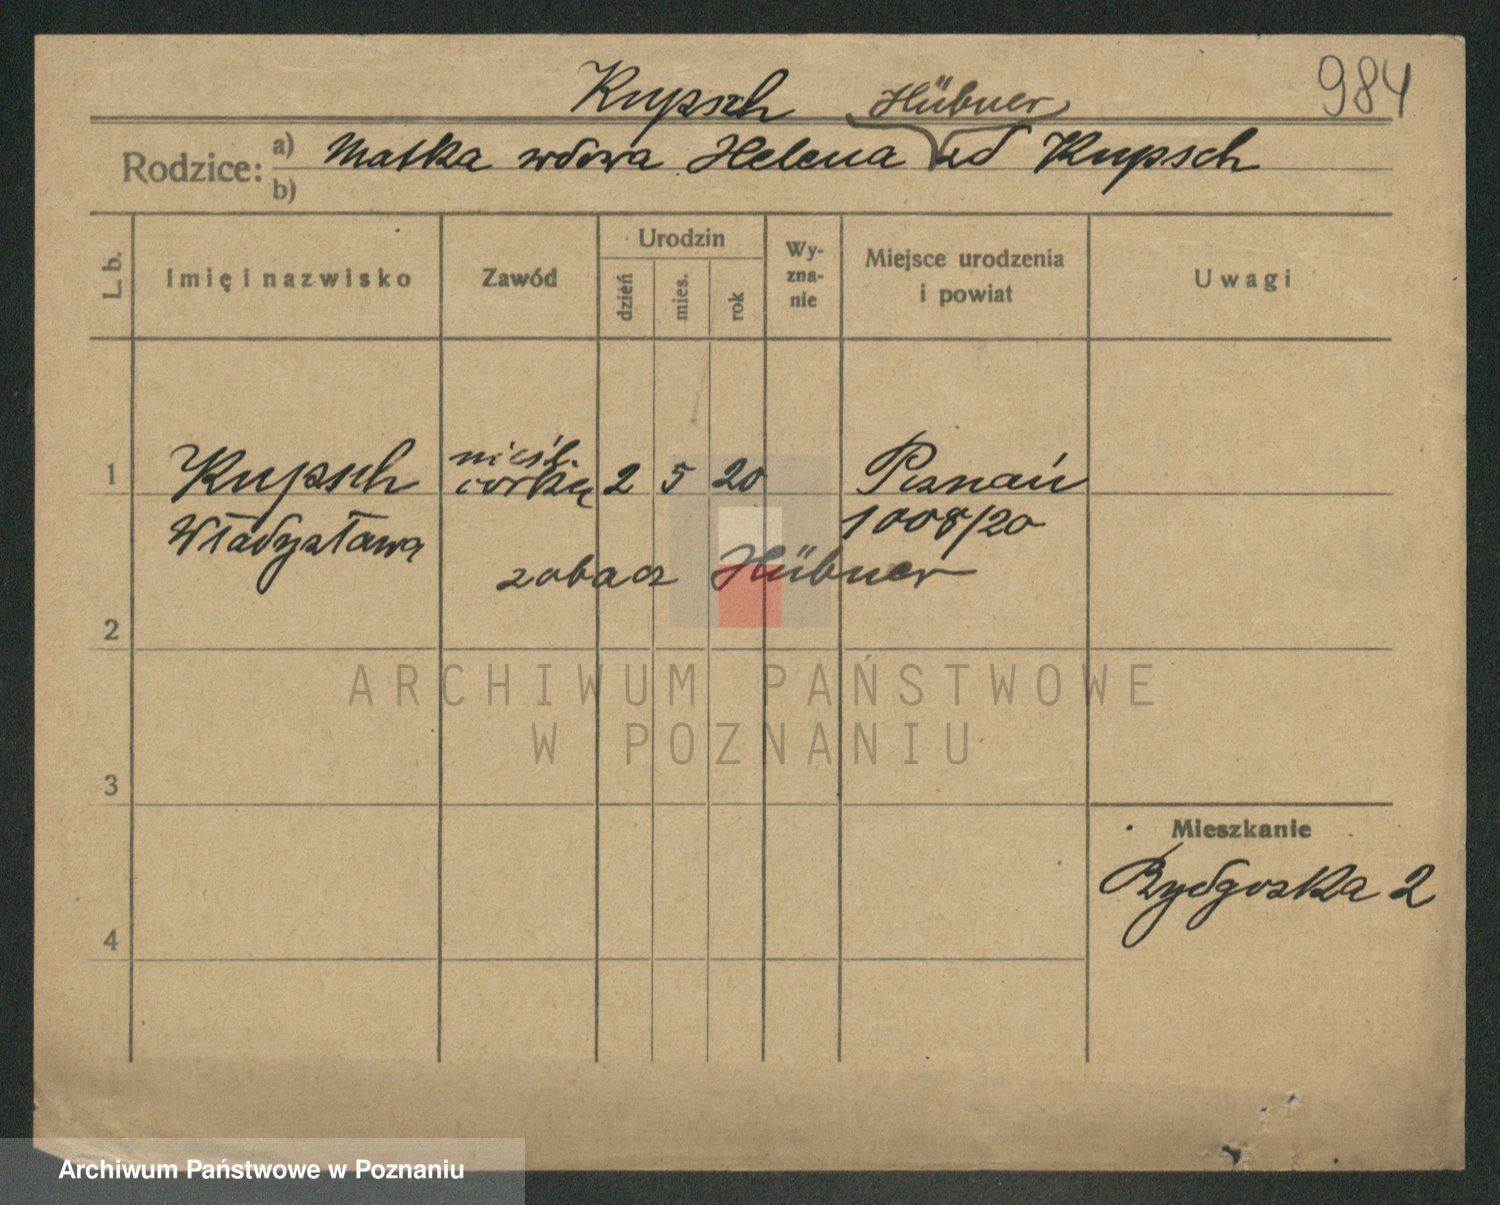 984
Kupsch Hübner
Rodzice: a) Matka wdowa Helena zd Kupsch
b)
L. b. Imię i nazwisko Zawód Urodzin dzień mies. rok Wyznanie Miejsce urodzenia i powiat Uwagi
1 Kupsch nieśl. córka 2 5 20 Poznań
Władysława 1008/20
zobacz Hübner
2
ARCHIWUM PAŃSTWOWE
W POZNANIU
3
Mieszkanie
Bydgoska 2
4
Archiwum Państwowe w Poznaniu